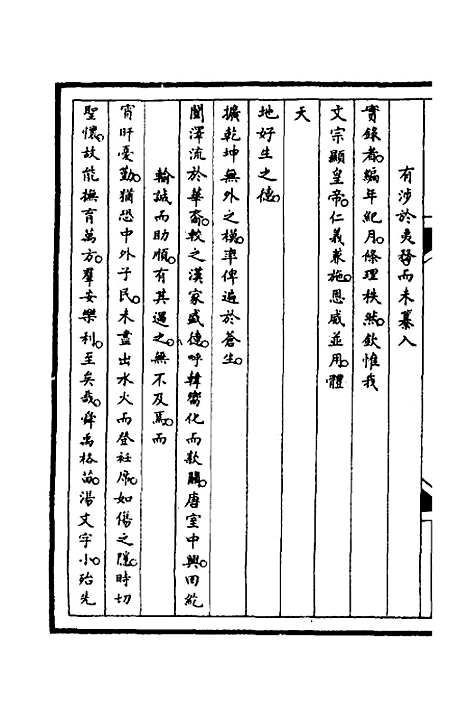 有涉於夷務而未纂入
實錄者編年紀月條理秩然欽惟我
文宗顯皇帝仁義兼施恩威並用體
天
地好生之德
擴乾坤無外之模率俾遍於蒼生
闓澤流於華裔較之漢家盛德呼韓嚮化而款關唐室中興回紇
輸誠而助順有其過之無不及焉而
宵旰憂勤猶恐中外子民未盡出水火而登衽席如傷之隱時切
聖懷故能撫育萬方羣安樂利至矣哉舜禹格苗湯文字小殆先